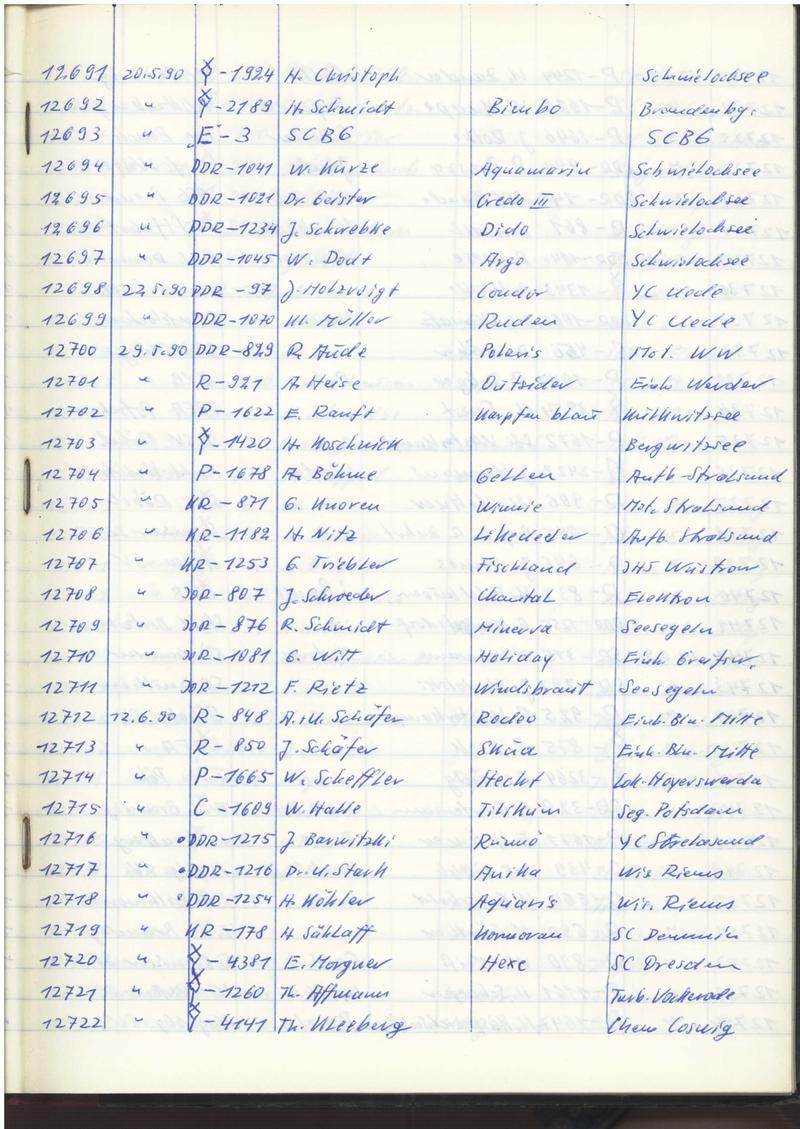 12691 20.5.90 -1924 H. Christoph Schwielochsee
12692 " -2189 H. Schmidt Bimbo Brandenbg.
12693 " E-3 SCBG SCBG
12694 " DDR-1041 W. Kurze Aquamarin Schwielochsee
12695 " DDR-1021 Dr. Geister Credo III Schwielochsee
12696 " DDR-1234 J. Schwebke Dido Schwielochsee
12697 " DDR-1045 W. Dodt Argo Schwielochsee
12698 22.5.90 DDR-97 J. Holzvoigt Condor YC Uede
12699 " DDR-1070 M. Müller Ruden YC Uede
12700 29.5.90 DDR-829 R. Aude Polaris Mot. WW
12701 " R-921 A. Heise Outsider Einh Werder
12702 " P-1622 E. Ranft Karpfen blau Kulkwitzsee
12703 " -1420 H. Koschnick Bergwitzsee
12704 " P-1678 A. Böhme Gellen Aufb-Stralsund
12705 " KR-871 G. Knoren Winnie Mot. Stralsund
12706 " KR-1182 H. Nitz Likedeeler Aufb. Stralsund
12707 " KR-1253 G. Triebler Fischland IHS Wustrow
12708 " JOR-807 J. Schroeder Chantal Elektron
12709 " JOR-876 R. Schmidt Minerva Seesegeln
12710 " JOR-1081 G. Witt Holiday Einh Greifsw.
12711 " JOR-1212 F. Rietz Windsbraut Seesegeln
12712 12.6.90 R-848 A.u.U. Schäfer Rodoo Einh. Bln.-Mitte
12713 " R-850 J. Schäfer Skua Einh. Bln.-Mitte
12714 " P-1665 W. Scheffler Hecht Lok-Hoyerswerda
12715 " C-1609 W. Halle Tilikum Seg. Potsdam
12716 " DDR-1215 J. Barwitzki Rumö YC Strelasund
12717 " DDR-1216 Dr. U. Stark Anika Wis. Riems
12718 " DDR-1254 H. Köhler Aquaris Wis. Riems
12719 " KR-178 H. Sühlaff Kormoran SC Demmin
12720 " -4381 E. Morgner Hexe SC Dresden
12721 " -1260 Th. Affmann Turb. Vockerode
12722 " -4141 Th. Kleeberg Chem Coswig